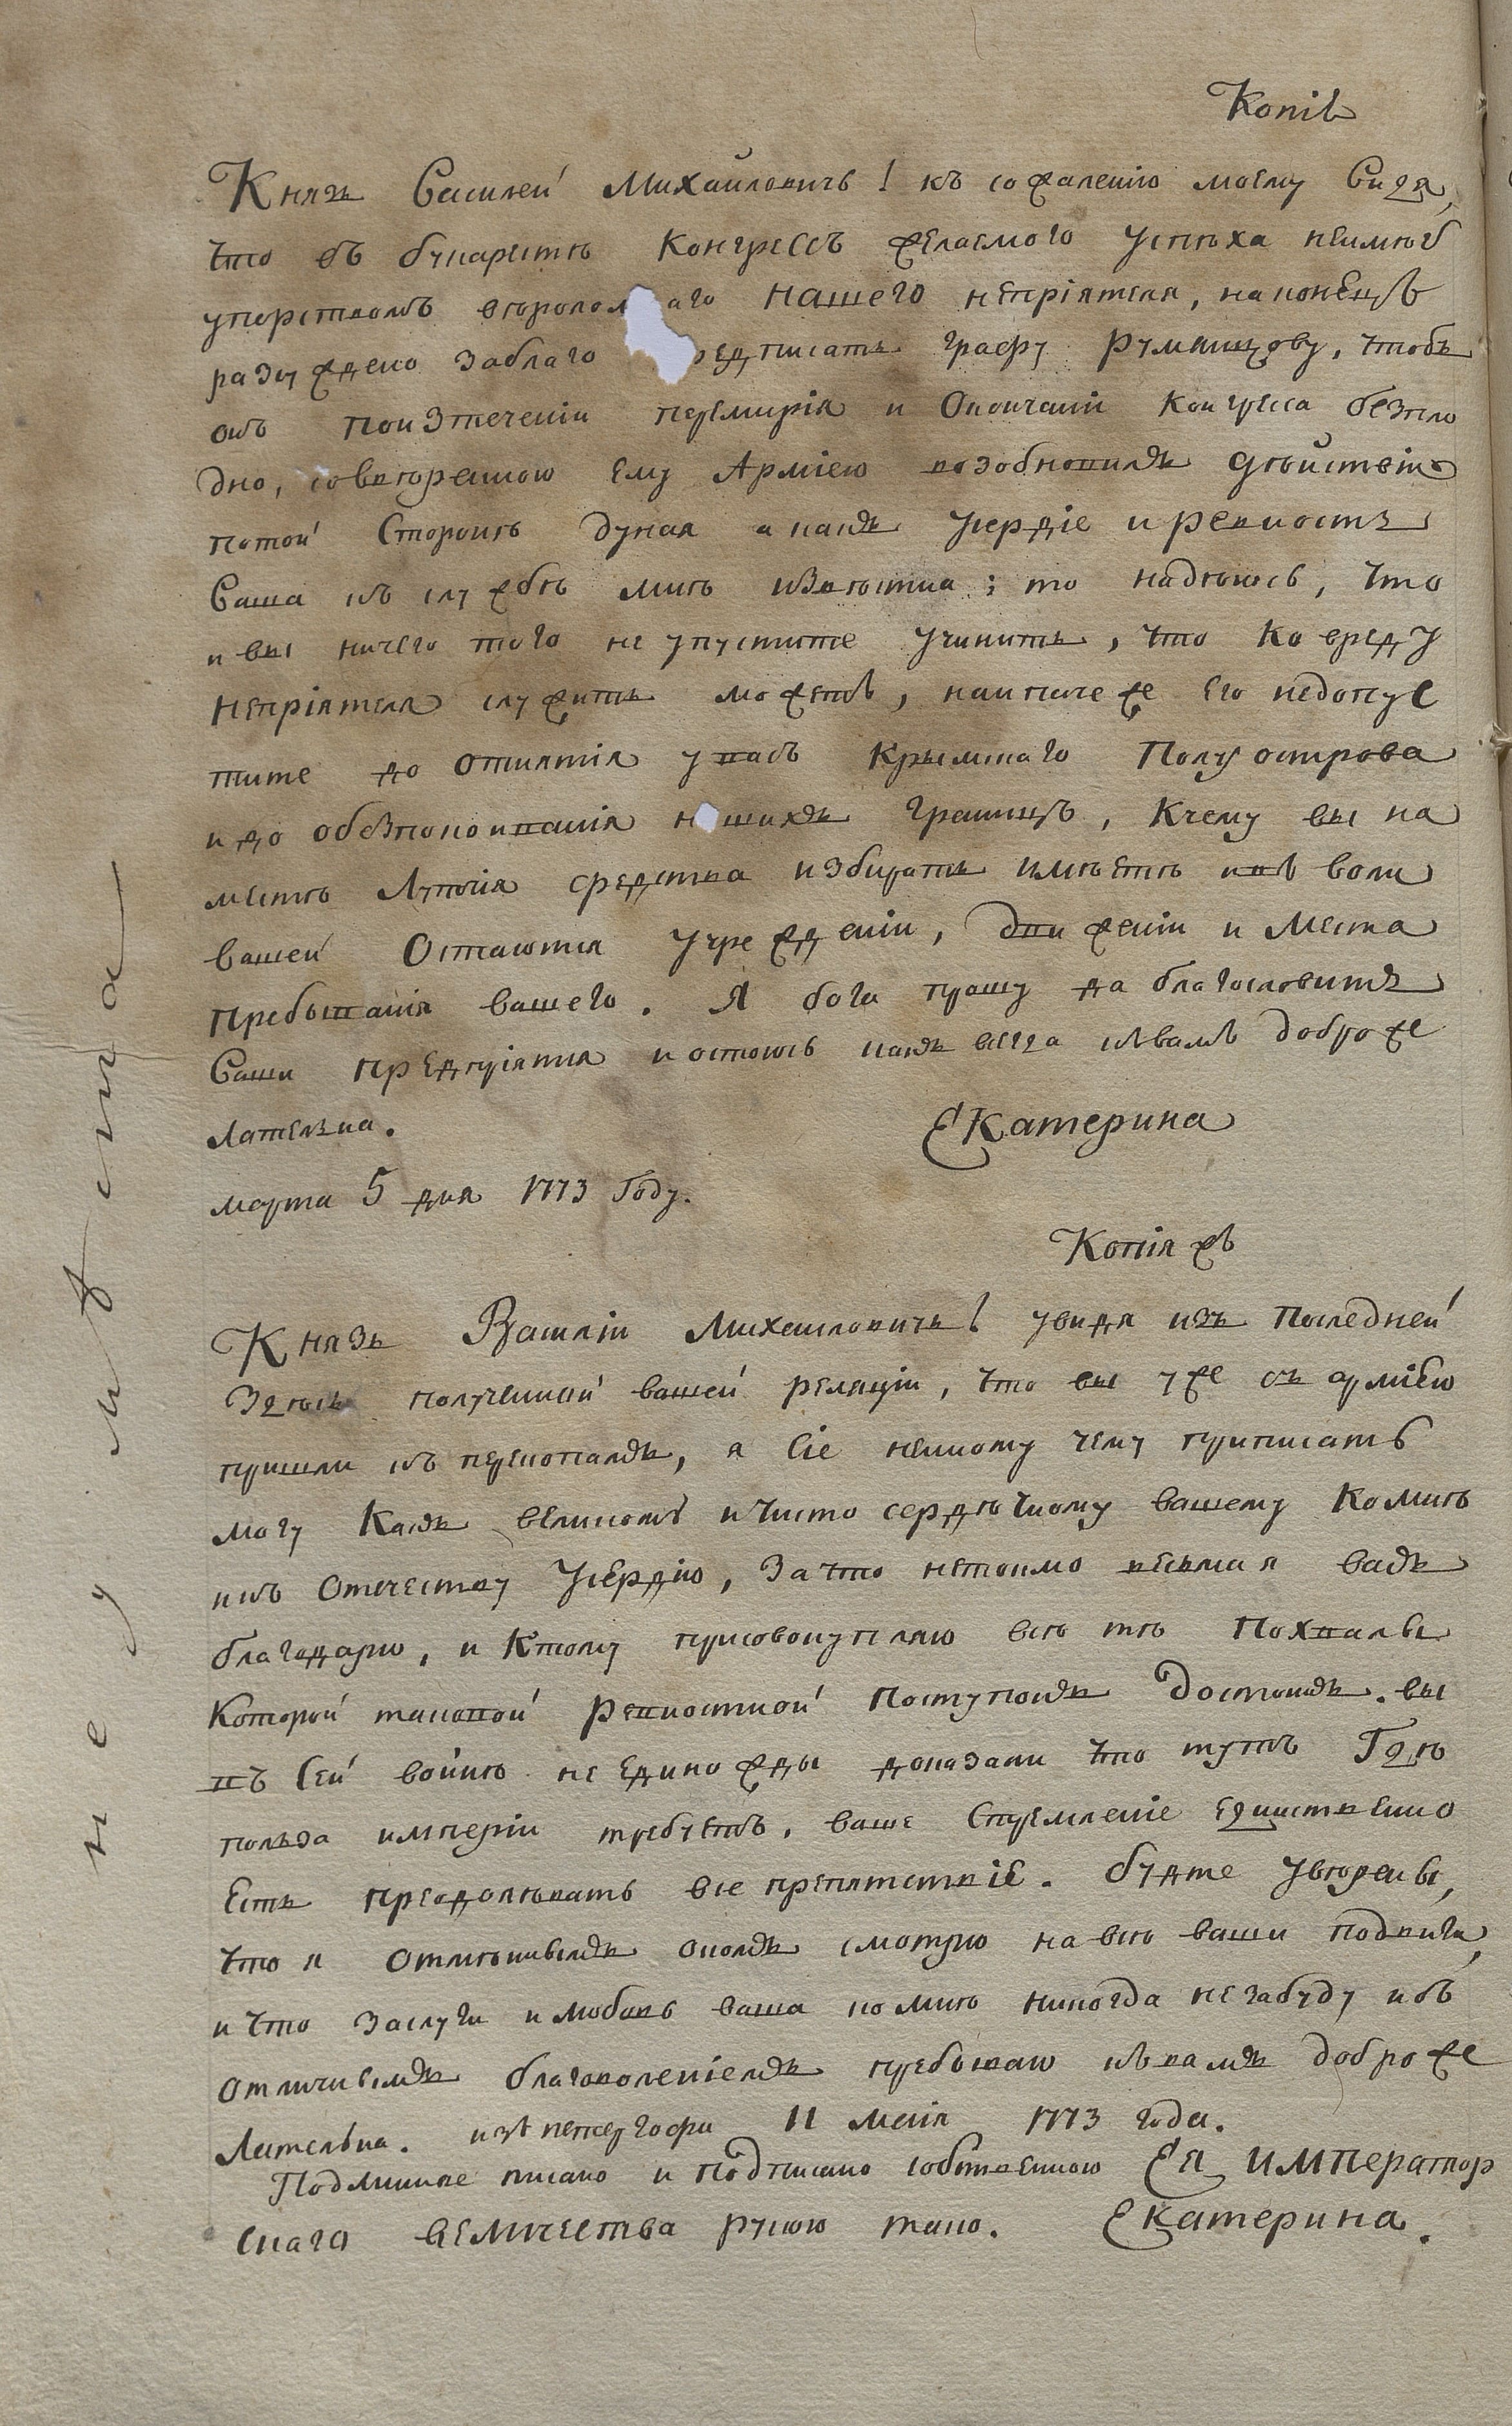 Копiѣ
Князь Василей Михайловичь! къ сожалению моему видя,
что въ букарестѣ Конгрессъ желаемого успѣха неимѣ
упорствомъ вѣролом аго нашего непрiятеля, наконецъ
разсуждено заблаго редписать графу румянцову, чтобъ
онъ поизтеченiи перемирiя и Окончанiи Конгресса безпло
дно, совверенною ему Армiею возобновилъ дѣйствiе
потой Сторонѣ дуная а какъ усердiе и ревность
Ваша къ службѣ мнѣ извѣстна; то надѣюсь, что
и вы ничего того не упустите учинить, что ко вреду
непрiятеля служить можетъ, наипаче же его недопус
тите до отнятiя унасъ Крымскаго Полуострова
и до обезпокоиванiя н шихъ границъ, Кчему вы на
местѣ Лутчiя средства избирать имѣетѣ ивъ воли
вашей Остаются учрежденiи, движенiи и места
пребыванiя вашего. Я бога прошу да благословитъ
Ваши предпрiятия и остаюсь какъ всегда къвамъ доброже
лательна. Екатерина
марта 5 дня 1773 Году.
Копiя жъ
Князь Василiи Михаиловичь! увидя изъ Последней
Здѣсь полученной вашей реляцiи, что вы уже съ армiею
пришли къ перекопамъ, я сiе неиному чему приписать
могу Какъ великому ичисто сердѣчному вашему Комнѣ
икъ Отечеству усердiю, За что нетокмо весьма я васъ
благодарю, и Ктому присовокупляю всю ту Похвалы
Которой таковой ревностной Поступокъ Достоинъ. вы
въ Сей войнѣ не единожды доказали что тутъ Гдѣ
польза империи требуетъ, ваше Стремленiе единственно
Есть преодолѣвать все препятствiе. будте уверены,
что я Отмѣннымъ окомъ смотрю на всѣ ваши подвиги,
и что заслуги и любовь ваша ко мнѣ никогда не забуду и съ
отличнымъ благоволенiемъ пребываю къвамъ доброже
Лательна. изъ петергофа 11 маiя 1773 года.
Подлинное писано и Подписано собственною Ея император
Скаго величества рукою тако. Екатерина.